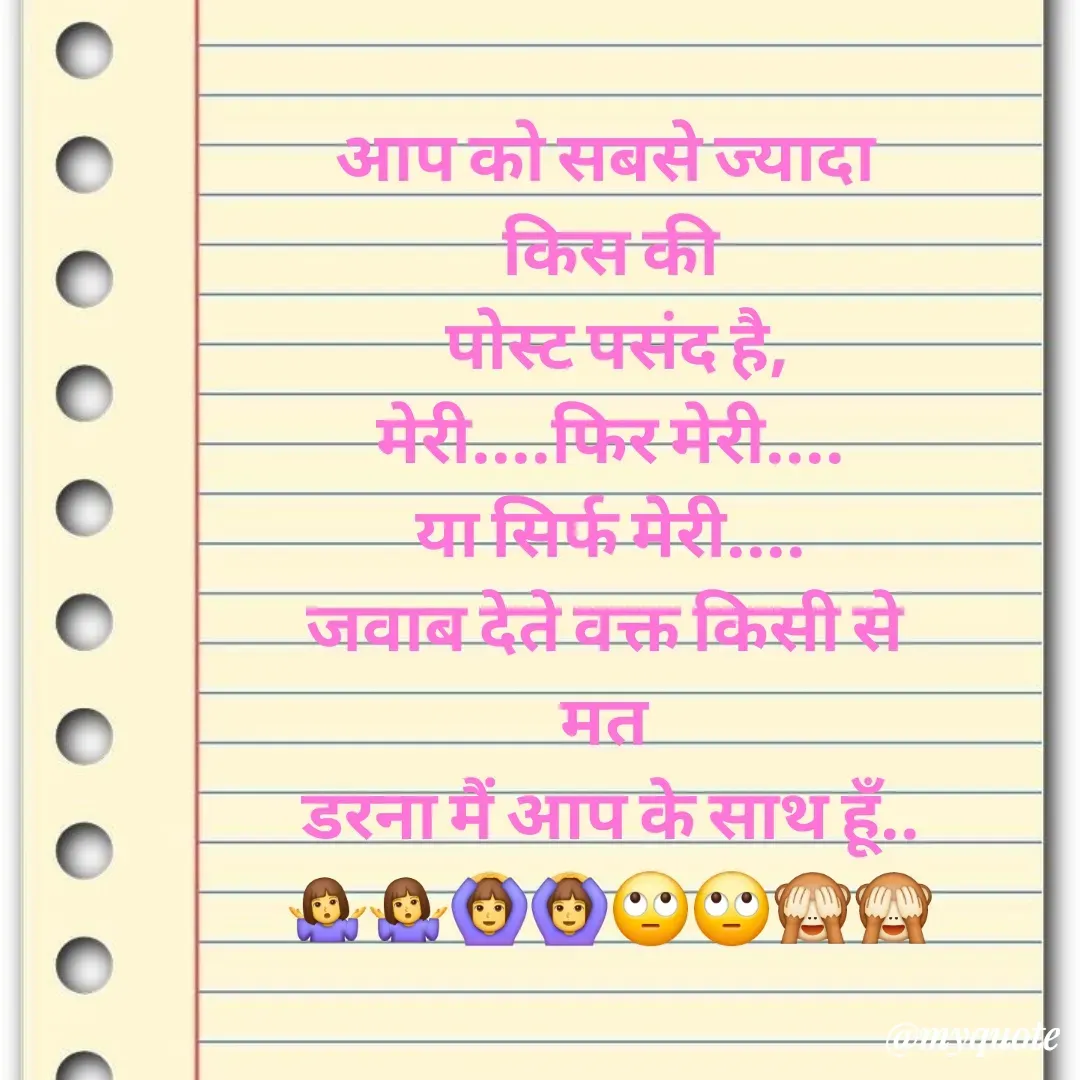 आप को सबसे ज्यादा
किस की
पोस्ट पसंद है,
मेरी....फिर मेरी....
या सिर्फ मेरी....
जवाब देते वक्त किसी से
मत
डरना मैं आप के साथ हूँ..
🤷‍♀️🤷‍♀️🙆‍♀️🙆‍♀️🙄🙄🙈🙈
@myquote